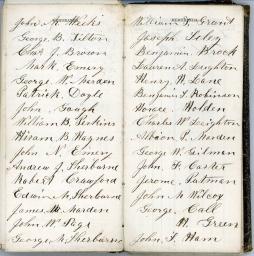 John M. Weeks
George B. Tilton
Chas J. Brown
Mark Emery
George W. Marden
Patrick Doyle
John Gaugh
William B. Perkins
Hiram B. Haynes
John N. Emery
Andrew J. Sherburne
Robert Crawford
Edwin M. Sherburne
James M. Marden
John W. Page
George A. Sherburne
William S. Grant
Joseph Foley
Benjamin Brock
Lauren A. Leighton
Henry W. Lane
Benjamin F. Robinson
Horace Holden
Charles W. Leighton
Albion P. Marden
George W. Gilman
John F. Carter
Jerome Patman
John N. Wilcoy
George Call
W. Green
John F. Ham